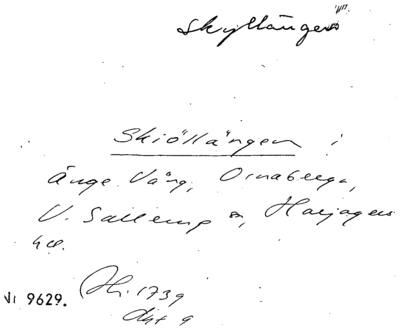 Skyllängen
Skiöllängen i
Änge Vång, Ornaberga,
V. Sallerup sn, Harjagers
hd.
Vi 9629. Hi. 1739
Akt 9